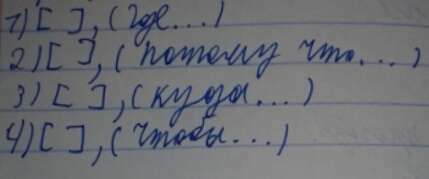 1) [ ], (где...)
2) [ ], (потому что...)
3) [ ], (куда...)
4) [ ], (чтобы...)